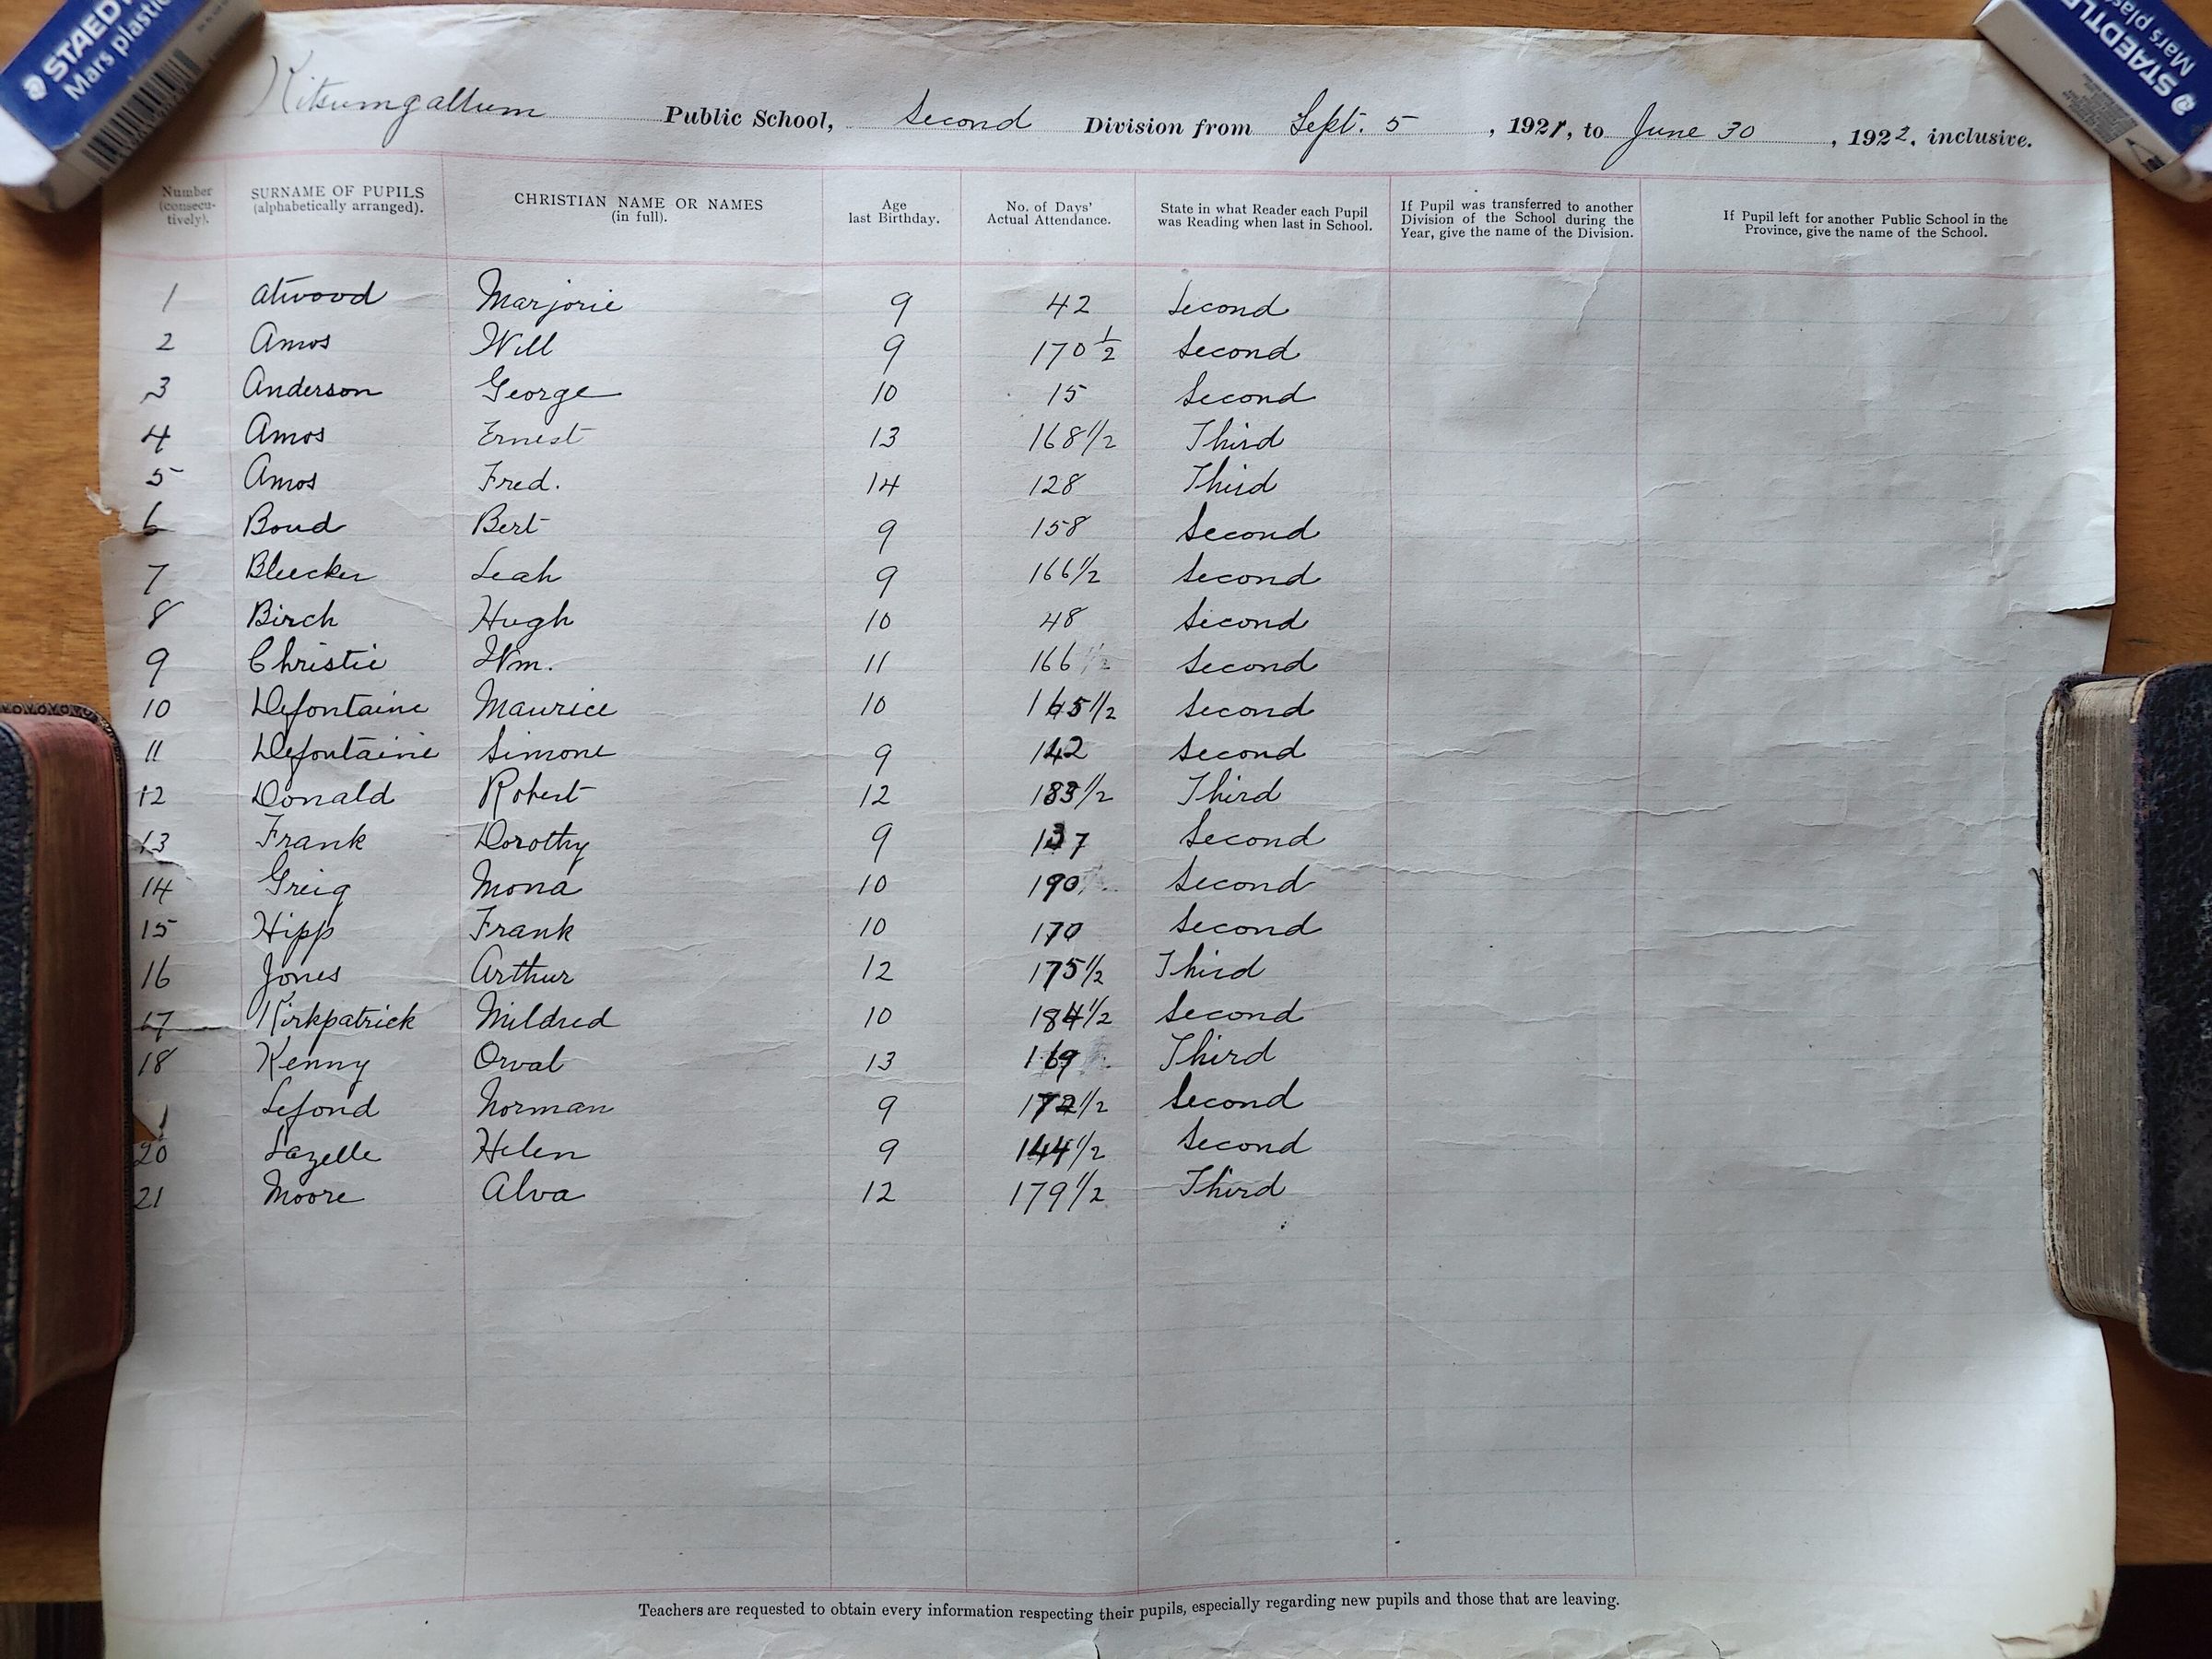 STAEDTLER
Mars plastic
STAEDTLER
Mars plastic
Kitsumgallum Public School, Second Division from Sept. 5, 1921, to June 30, 1922, inclusive.
Number (consecutively). SURNAME OF PUPILS (alphabetically arranged). CHRISTIAN NAME OR NAMES (in full). Age last Birthday. No. of Days' Actual Attendance. State in what Reader each Pupil was Reading when last in School. If Pupil was transferred to another Division of the School during the Year, give the name of the Division. If Pupil left for another Public School in the Province, give the name of the School.
1 Atwood Marjorie 9 42 Second
2 Amos Will 9 170 1/2 Second
3 Anderson George 10 15 Second
4 Amos Ernest 13 168 1/2 Third
5 Amos Fred. 14 128 Third
6 Boud Bert 9 158 Second
7 Bleecker Leah 9 166 1/2 Second
8 Birch Hugh 10 48 Second
9 Christie Wm. 11 166 Second
10 Defontaine Maurice 10 165 1/2 Second
11 Defontaine Simone 9 142 Second
12 Donald Robert 12 183 1/2 Third
13 Frank Dorothy 9 137 Second
14 Greig Mona 10 190 Second
15 Hipp Frank 10 170 Second
16 Jones Arthur 12 175 1/2 Third
17 Kirkpatrick Mildred 10 184 1/2 Second
18 Kenny Orval 13 169 Third
Lefond Norman 9 172 1/2 Second
20 Lazelle Helen 9 144 1/2 Second
21 Moore Alva 12 179 1/2 Third
Teachers are requested to obtain every information respecting their pupils, especially regarding new pupils and those that are leaving.